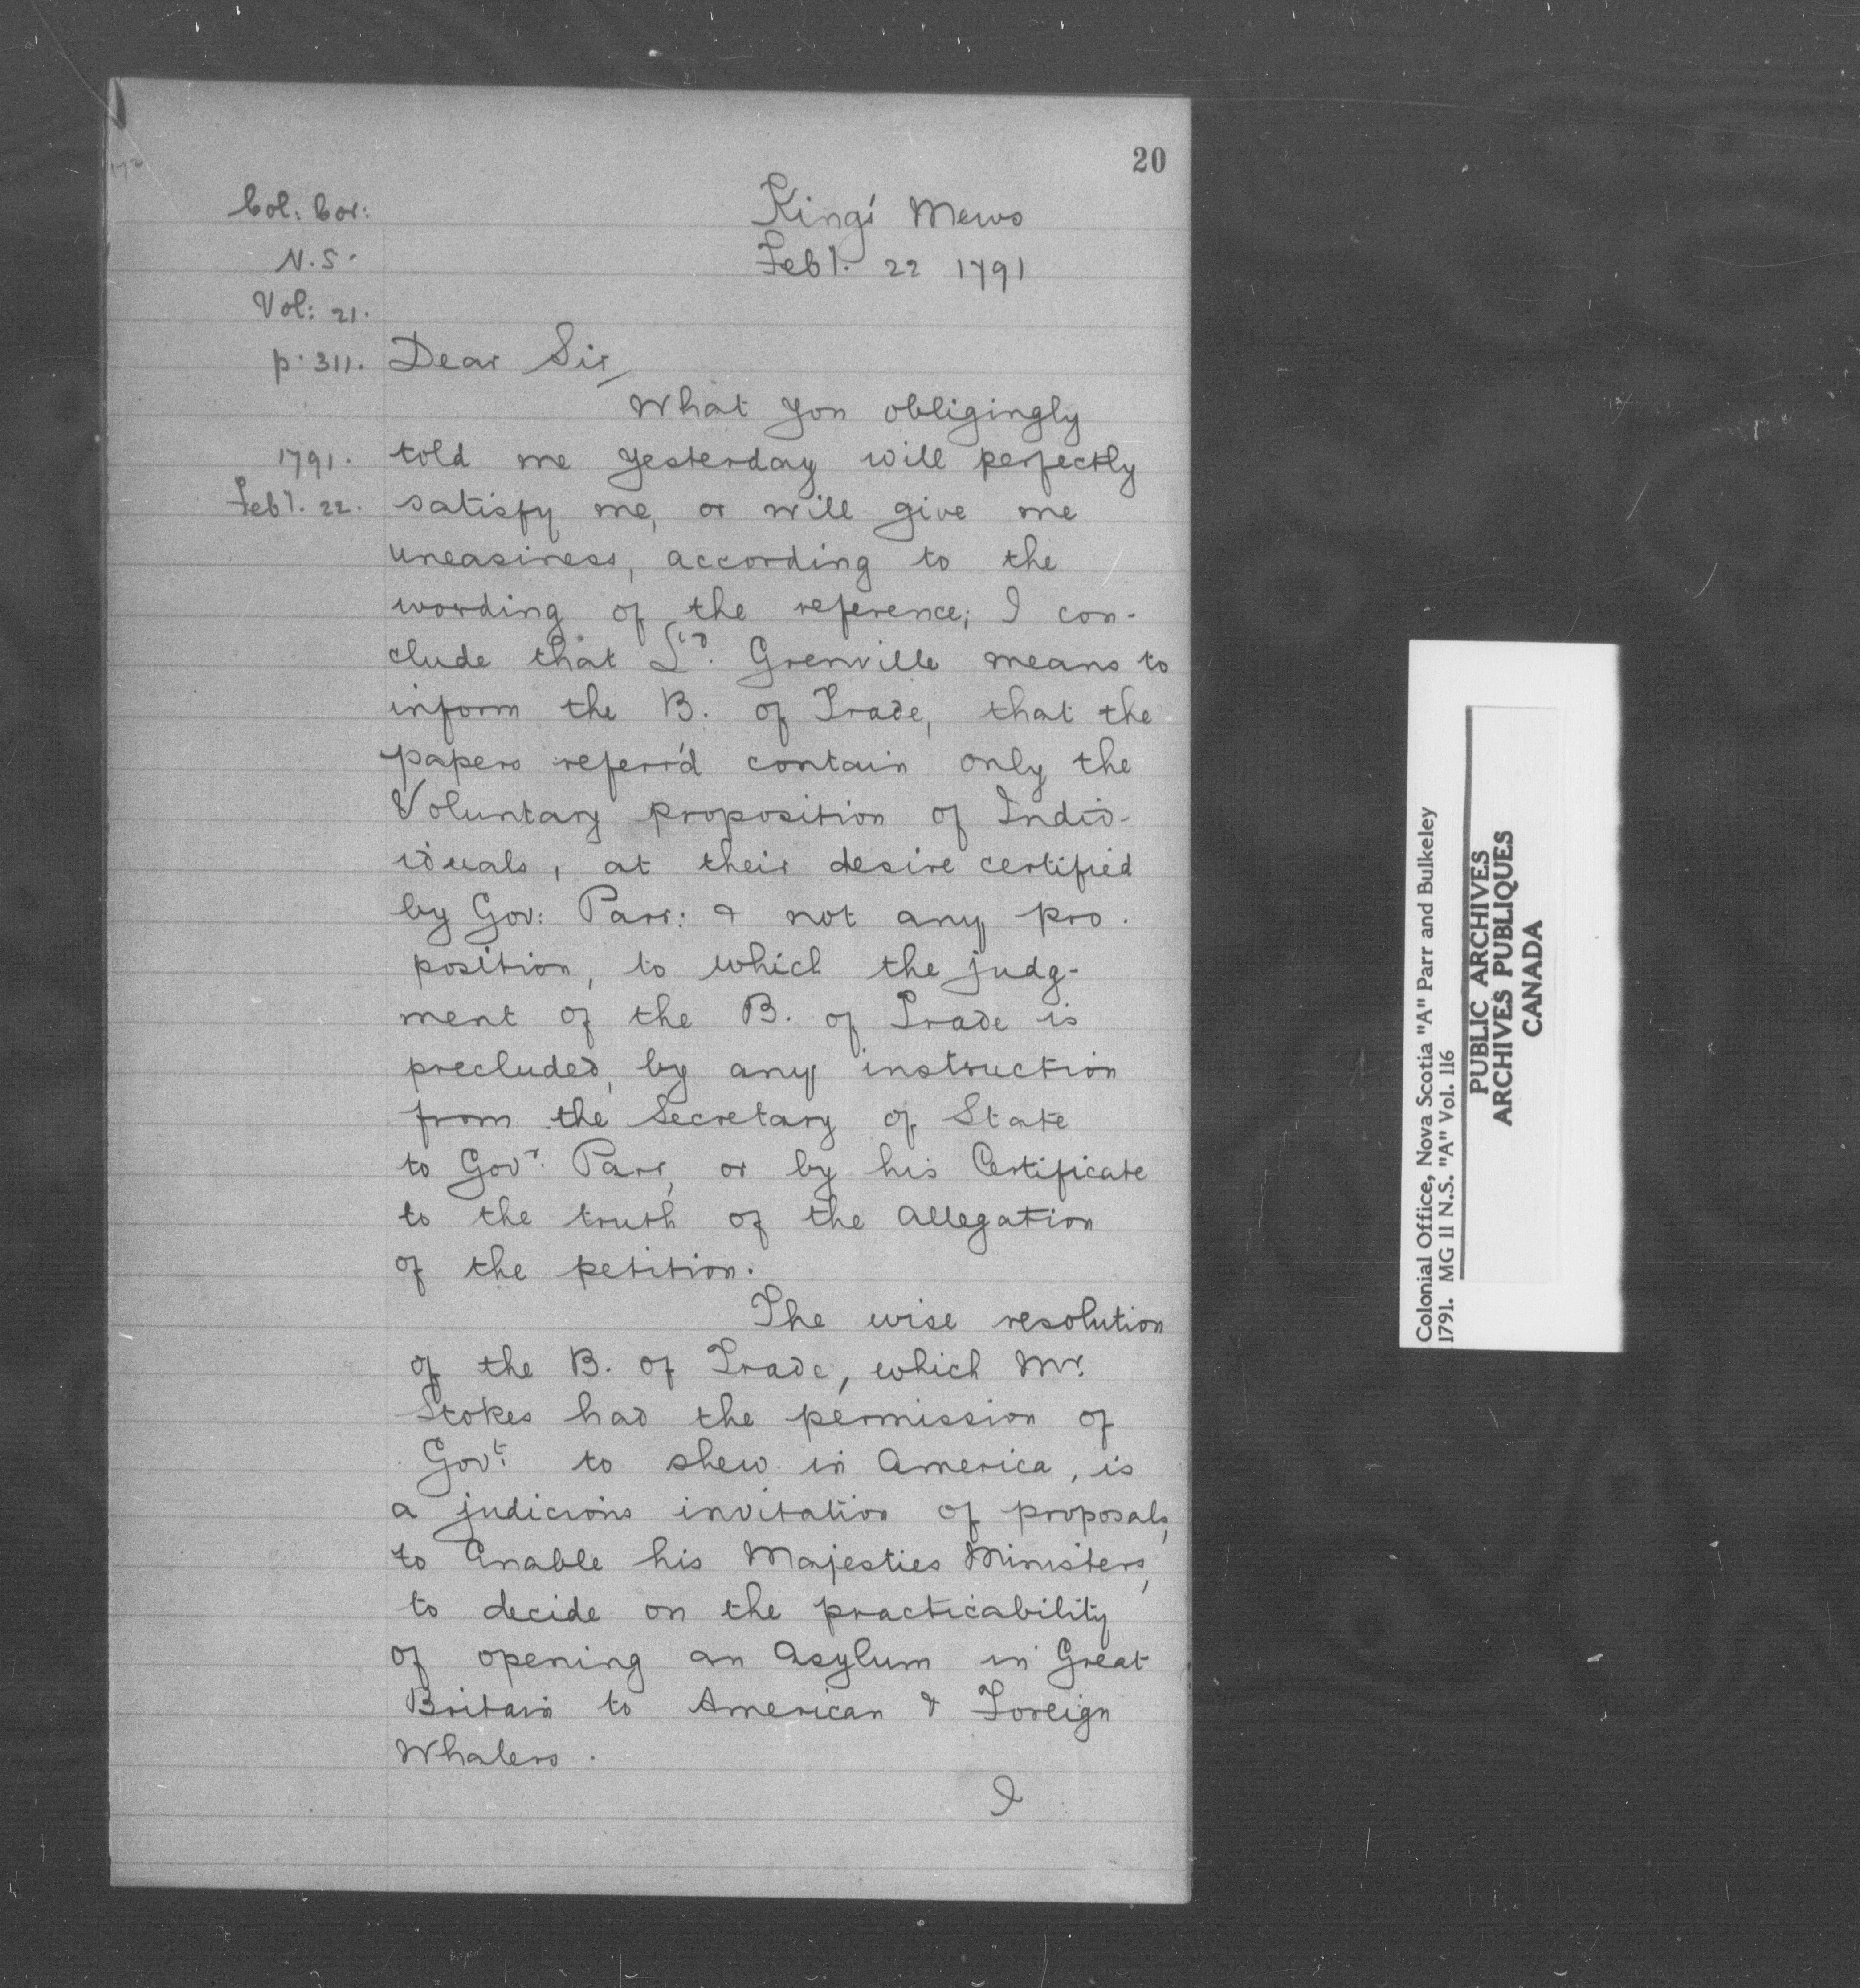 20
Col: Cor:
N.S.
Vol: 21.
p. 311.
1791.
Feby. 22.
King's Mews
Feby. 22 1791
Dear Sir,
What you obligingly
told me yesterday will perfectly
satisfy me, or will give me
uneasiness, according to the
wording of the reference; I con-
clude that Ld. Grenville means to
inform the B. of Trade, that the
papers referr'd contain only the
Voluntary proposition of Indiv-
iduals, at their desire certified
by Gov: Parr: & not any pro-
position, to which the judg-
ment of the B. of Trade is
precluded, by any instruction
from the Secretary of State
to Govr. Parr, or by his Certificate
to the truth of the allegation
of the petition.
The wise resolution
of the B. of Trade, which Mr.
Stokes had the permission of
Govt. to shew in America, is
a judicious invitation of proposals,
to Enable his Majesties Ministers,
to decide on the practicability
of opening an Asylum in Great
Britain to American & Foreign
Whalers.
I
Colonial Office, Nova Scotia "A" Parr and Bulkeley
1791. MG 11 N.S. "A" Vol. 116
PUBLIC ARCHIVES
ARCHIVES PUBLIQUES
CANADA